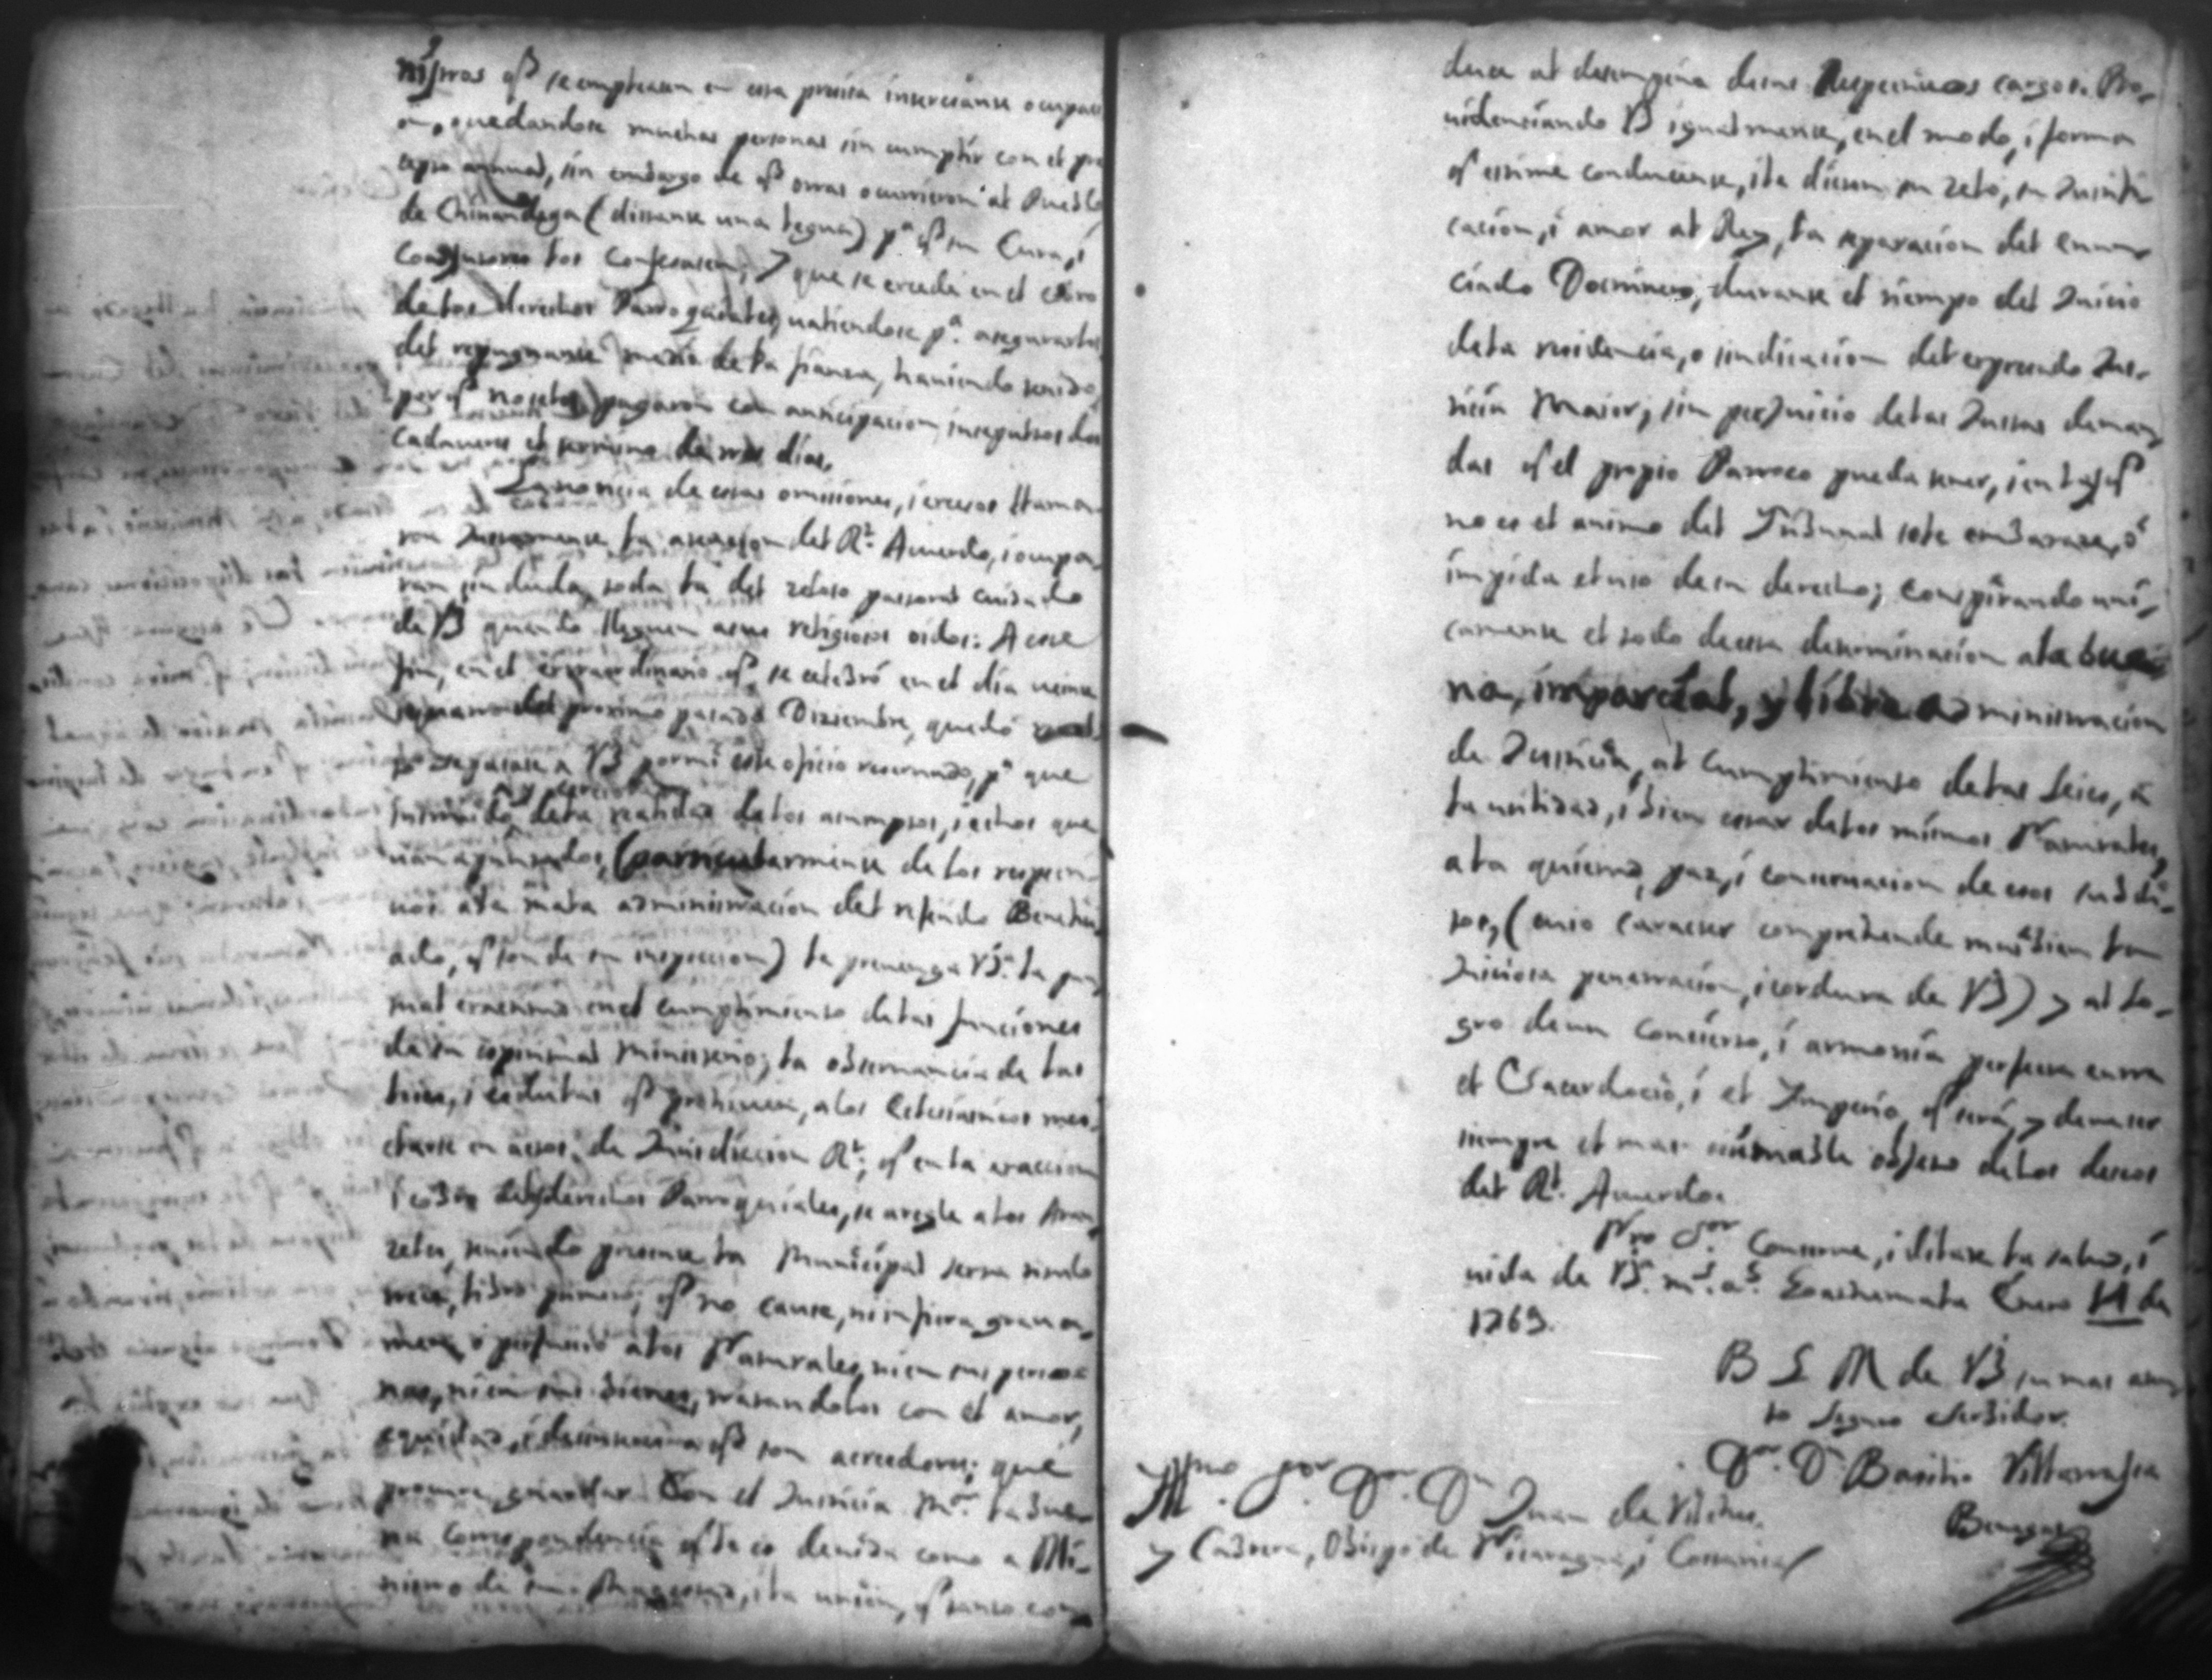 nistros q.e se emplearan en essa precissa interesante ocupaci
on, quedandose muchas personas sin cumplir con el pre
cepto annual, sin embargo de q.e otras ocurrieron al Pueblo
de Chinandega (distante una legua) p.a q.e su Cura, i
Coadjutores los Confesasen; y que se excede en el cobro
de los derechos Parroquiales, valiendose p.a asegurarlos
del repugnante medio de la fianza, haviendo tenido,
por q.e no se los pagaron con anticipacion, insepultos dos
Cadaveres el termino de tres días.
La noticia de essas omisiones, i excesos llama-
ron justamente la atencion del R.l Acuerdo, i ocupa-
ran sin duda, toda la del zeloso pastoral cuidado
de VS quando lleguen a sus religiosos oidos: A este
fin, en el extraordinario q.e se celebró en el día veinte
del proximo pasado Diziembre, quedó
a VS por mi este oficio reservado, p.a que
de la realidad de los asumptos, i echos que
van apuntados, (particularmente de los respecti-
vos a la mala administracion del referido Benefici-
ado, q.e son de su inspeccion) le prevenga VS. la pun-
tual exactitud en el cumplimiento de las funciones
de su espiritual Ministerio; la observancia de las
leies, i cedulas q.e prohiven, a los Eclesiasticos mes-
clarse en actos de Jurisdiccion R.l; q.e en la exaccion
i cobro de los derechos Parroquiales, se aregle a los Aran-
zeles, teniendo presente la Municipal
libro primero; q.e no cause, ni infiera grava-
men, o perjuicio a los Naturales, ni en sus perso-
nas, ni en sus bienes, tratandolos con el amor,
equidad, i q.e son acreedores; que
procure guardar con el Justicia M.or la bue-
na correspondencia q.e le es devida como a Mi-
nistro de su Magestad, i la union, q.e tanto con-
duce al desempeño de sus Respectivos cargos. Pro-
videnciando VS igualmente, en el modo, i forma
q.e estime conducente, i le dicten su zelo, su Justifi-
cación, i amor al Rey, la separación del enun-
ciado Doctrinero, durante el tiempo del Juicio
de la residencia, o sindicacion del expresado Jus-
ticia Maior; sin perjuicio de las Justas deman-
das q.e el propio Parroco pueda tener, q.e
no es el animo del Tribunal se le embarase, ó
impida el uso de su derecho; conspirando uni-
camente el todo de esta determinacion a la bue-
na, imparcial, y libre administracion
de Justicia, al cumplimiento de las Leies, á
la utilidad, i bien estar de los mismos Naturales,
a la quietud, paz, i conservacion de esos subdi-
tos, (cuio caracter comprehende mui bien la
Juiciosa penetración, i cordura de VS) y al lo-
gro de un Concierto, i armonía perfecta entre
el Sacerdocio, i el Imperio, q.e será, y deve ser
siempre el mas estimable objeto de los deseos
del R.l Acuerdo.
N.ro S.or Conserve, i dilate la salud, i
vida de VS. m.s a.s Goathemala Enero 14 de
1769.
B L M de VS su mas aten-
to seguro servidor.
D.or D.n Basilio Villarrasa
Benegas
Ill.mo S.or D.or D.n Juan de Vilches
y Cabrera, Obispo de Nicaragua, i Costarica